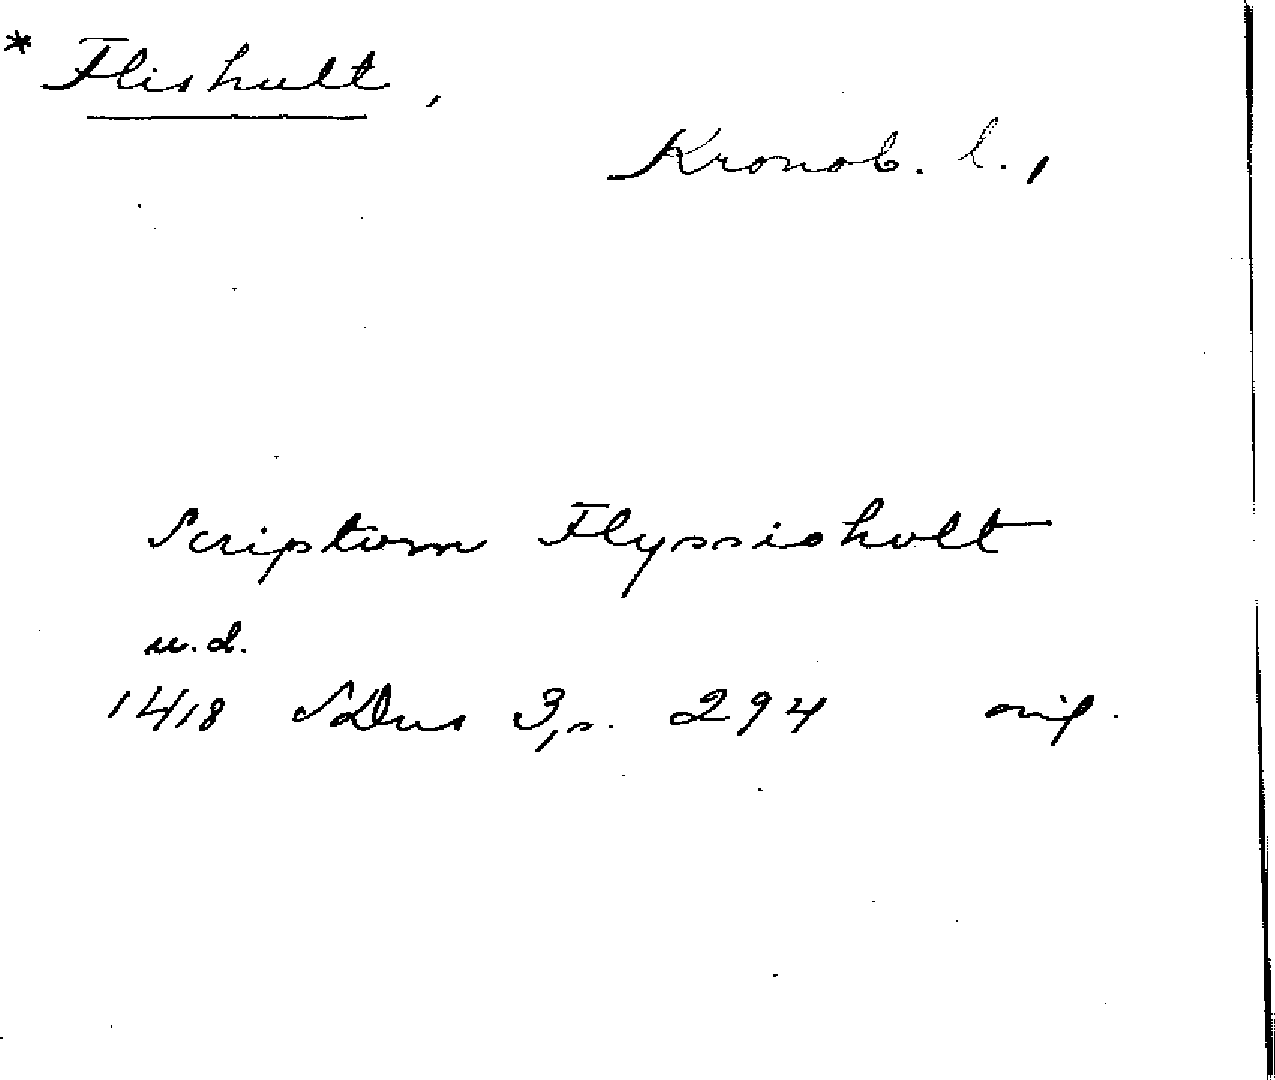 * Flishult,
Kronob. l.,
Scriptum Flyssisholt
u.d.
1418 SDns 3, s. 294 orig.